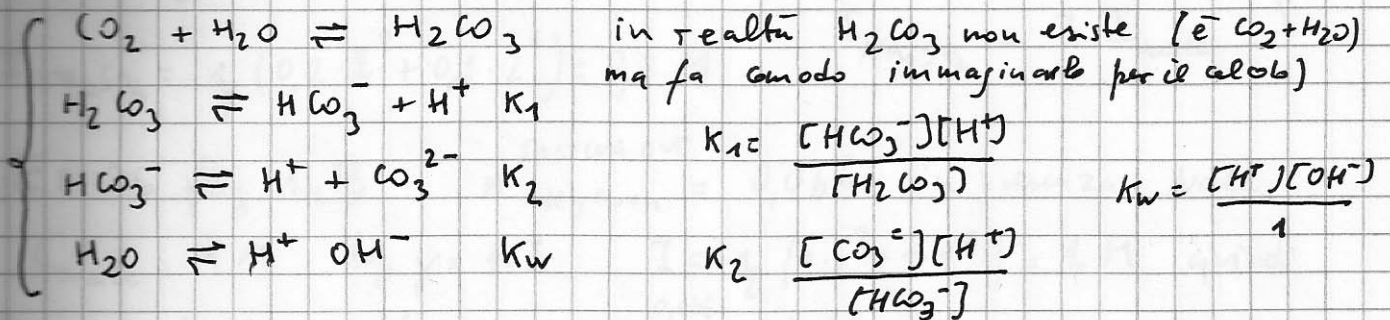 CO₂ + H₂O ⇌ H₂CO₃ in realtà H₂CO₃ non esiste (è CO₂+H₂O)
ma fa comodo immaginarlo per il calcolo)
H₂CO₃ ⇌ HCO₃⁻ + H⁺ K₁
K₁= [HCO₃⁻][H⁺] / [H₂CO₃]
HCO₃⁻ ⇌ H⁺ + CO₃²⁻ K₂
Kw = [H⁺][OH⁻] / 1
H₂O ⇌ H⁺ OH⁻ Kw
K₂ [CO₃⁼][H⁺] / [HCO₃⁻]